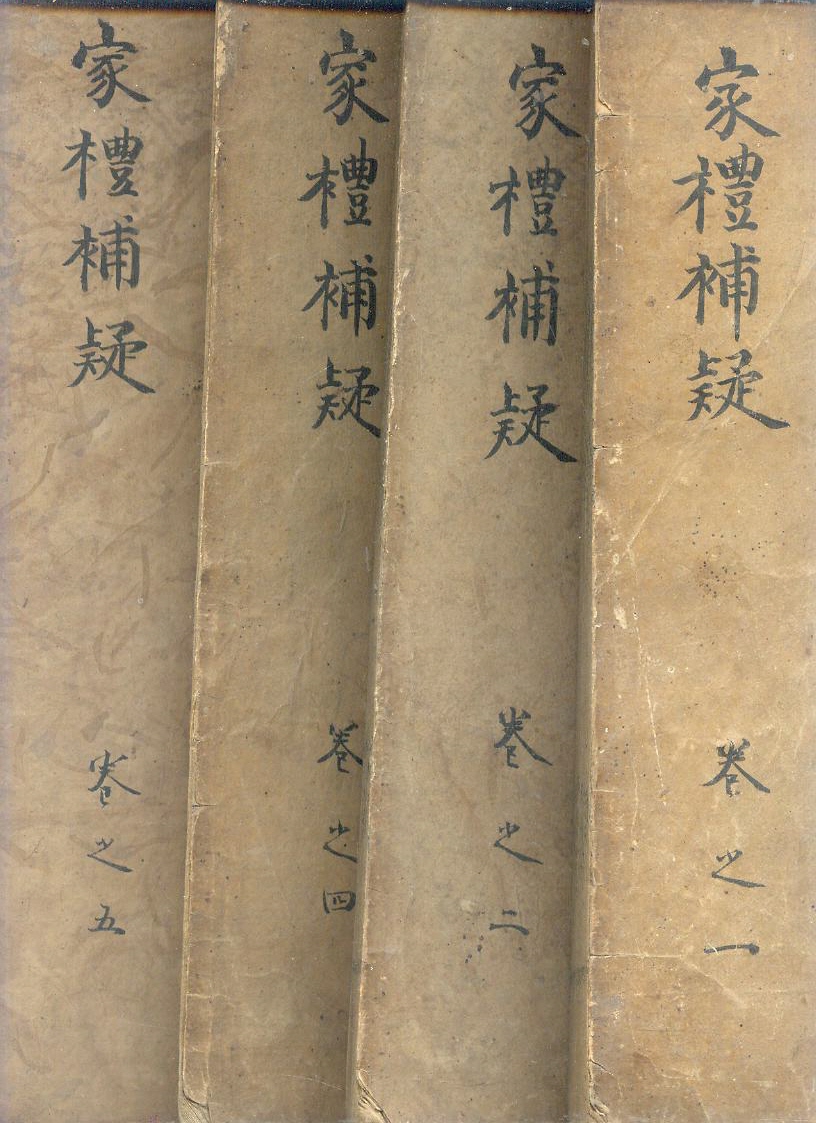 家禮補疑
卷之一
家禮補疑
卷之二
家禮補疑
卷之四
家禮補疑
卷之五